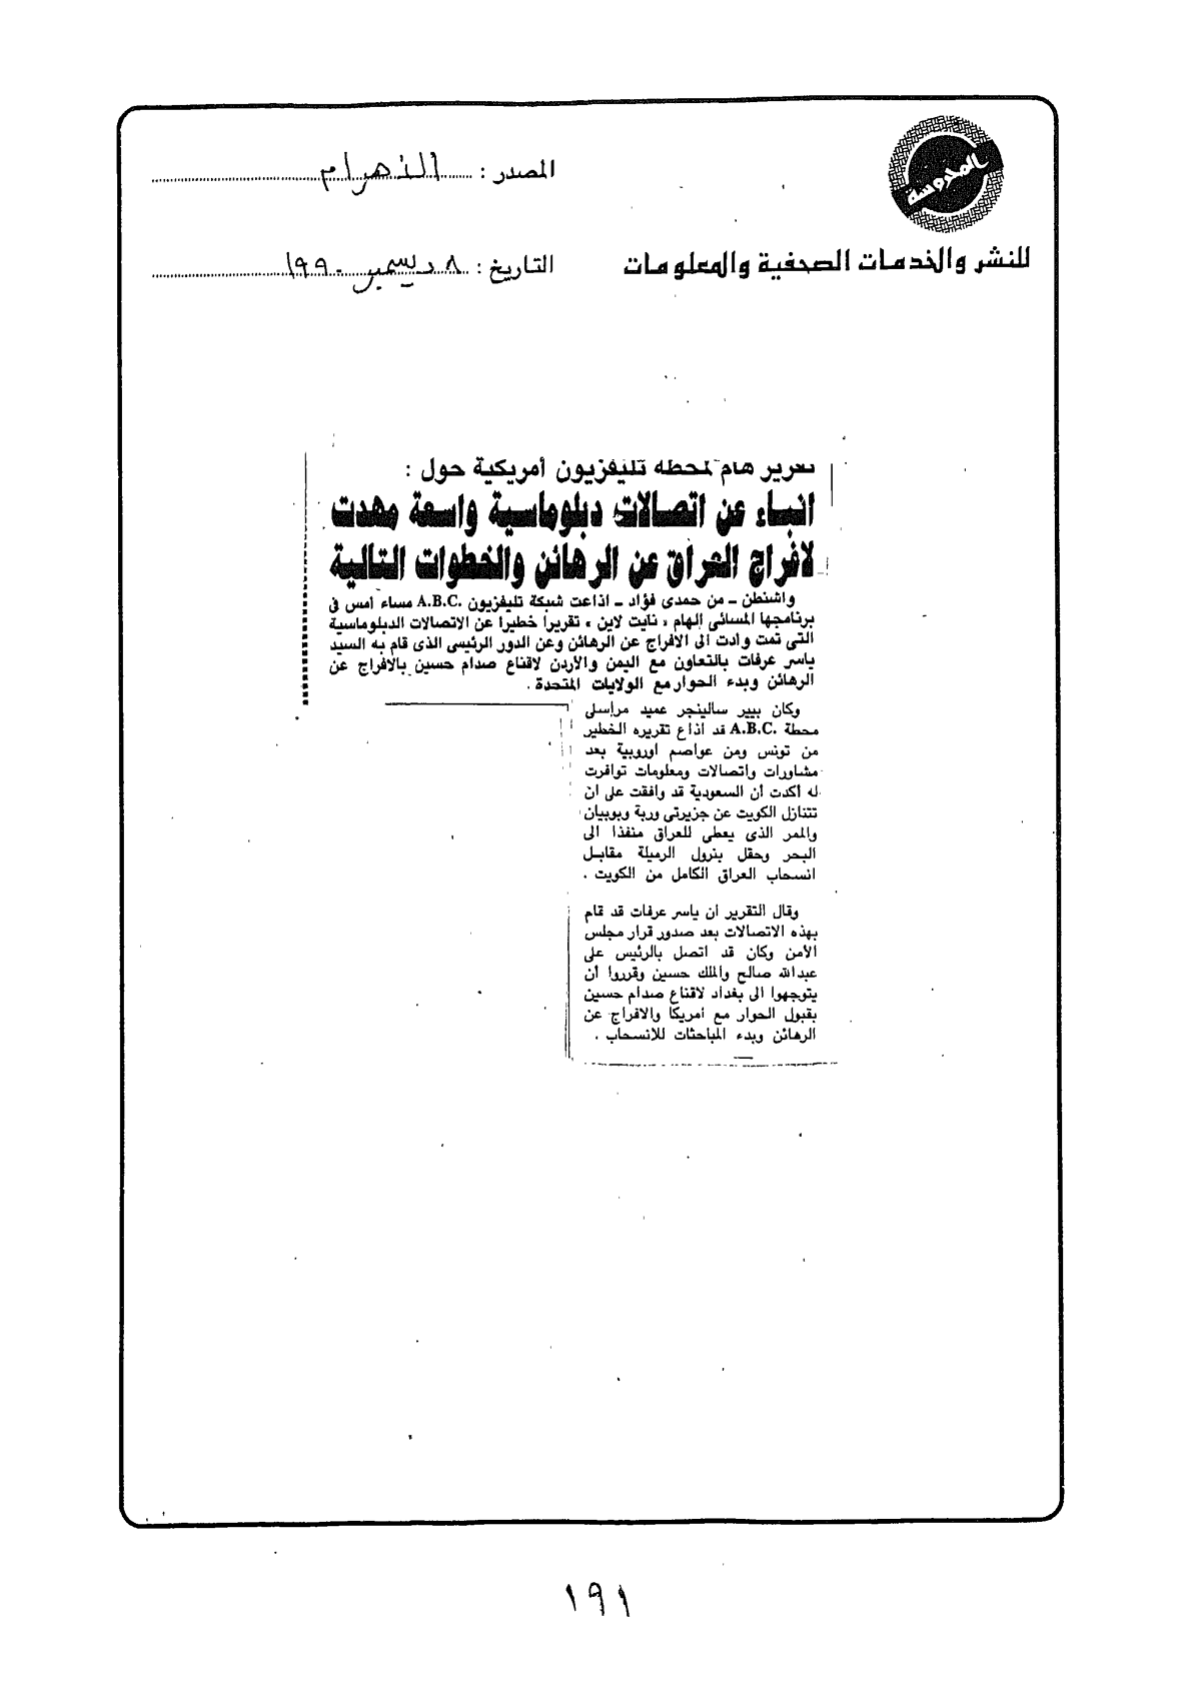 المحروسة
المصدر : الأهرام
للنشر والخدمات الصحفية والمعلومات
التاريخ : ٨ ديسمبر ١٩٩٠
تقرير هام لمحطة تليفزيون أمريكية حول :
انباء عن اتصالات دبلوماسية واسعة مهدت
لافراج العراق عن الرهائن والخطوات التالية
واشنطن - من حمدى فؤاد - اذاعت شبكة تليفزيون .A.B.C مساء أمس فى
برنامجها المسائى الهام « نايت لاين » تقريرا خطيرا عن الاتصالات الدبلوماسية
التى تمت وادت الى الافراج عن الرهائن وعن الدور الرئيسى الذى قام به السيد
ياسر عرفات بالتعاون مع اليمن والأردن لاقناع صدام حسين بالافراج عن
الرهائن وبدء الحوار مع الولايات المتحدة .
وكان بيير سالينجر عميد مراسلى
محطة .A.B.C قد اذاع تقريره الخطير
من تونس ومن عواصم اوروبية بعد
مشاورات واتصالات ومعلومات توافرت
له أكدت أن السعودية قد وافقت على ان
تتنازل الكويت عن جزيرتى وربة وبوبيان
والممر الذى يعطى للعراق منفذا الى
البحر وحقل بترول الرميلة مقابل
انسحاب العراق الكامل من الكويت .
وقال التقرير ان ياسر عرفات قد قام
بهذه الاتصالات بعد صدور قرار مجلس
الأمن وكان قد اتصل بالرئيس على
عبدالله صالح والملك حسين وقرروا أن
يتوجهوا الى بغداد لاقناع صدام حسين
بقبول الحوار مع أمريكا والافراج عن
الرهائن وبدء المباحثات للانسحاب .
١٩١